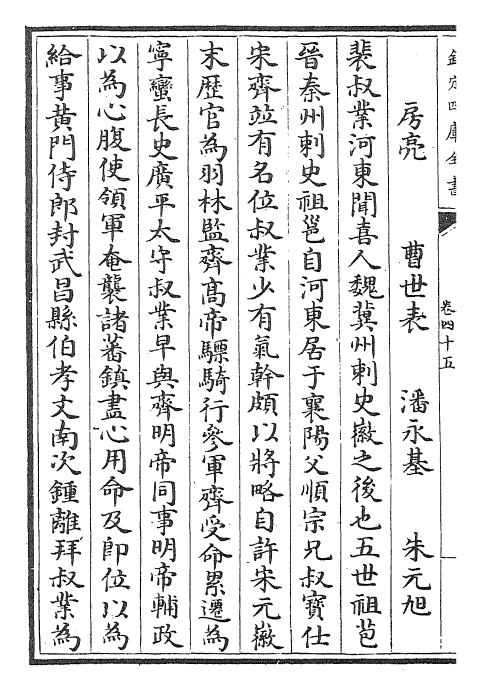 欽定四庫全書
卷四十五
房亮 曹世表 潘永基 朱元旭
裴叔業河東聞喜人魏冀州刺史徽之後也五世祖苞
晉秦州刺史祖邕自河東居于襄陽父順宗兄叔寶仕
宋齊竝有名位叔業少有氣幹頗以將略自許宋元徽
末歷官為羽林監齊髙帝驃騎行參軍齊受命累遷為
寧蠻長史廣平太守叔業早與齊明帝同事明帝輔政
以為心腹使領軍奄襲諸蕃鎮盡心用命及即位以為
給事黄門侍郎封武昌縣伯孝文南次鍾離拜叔業為